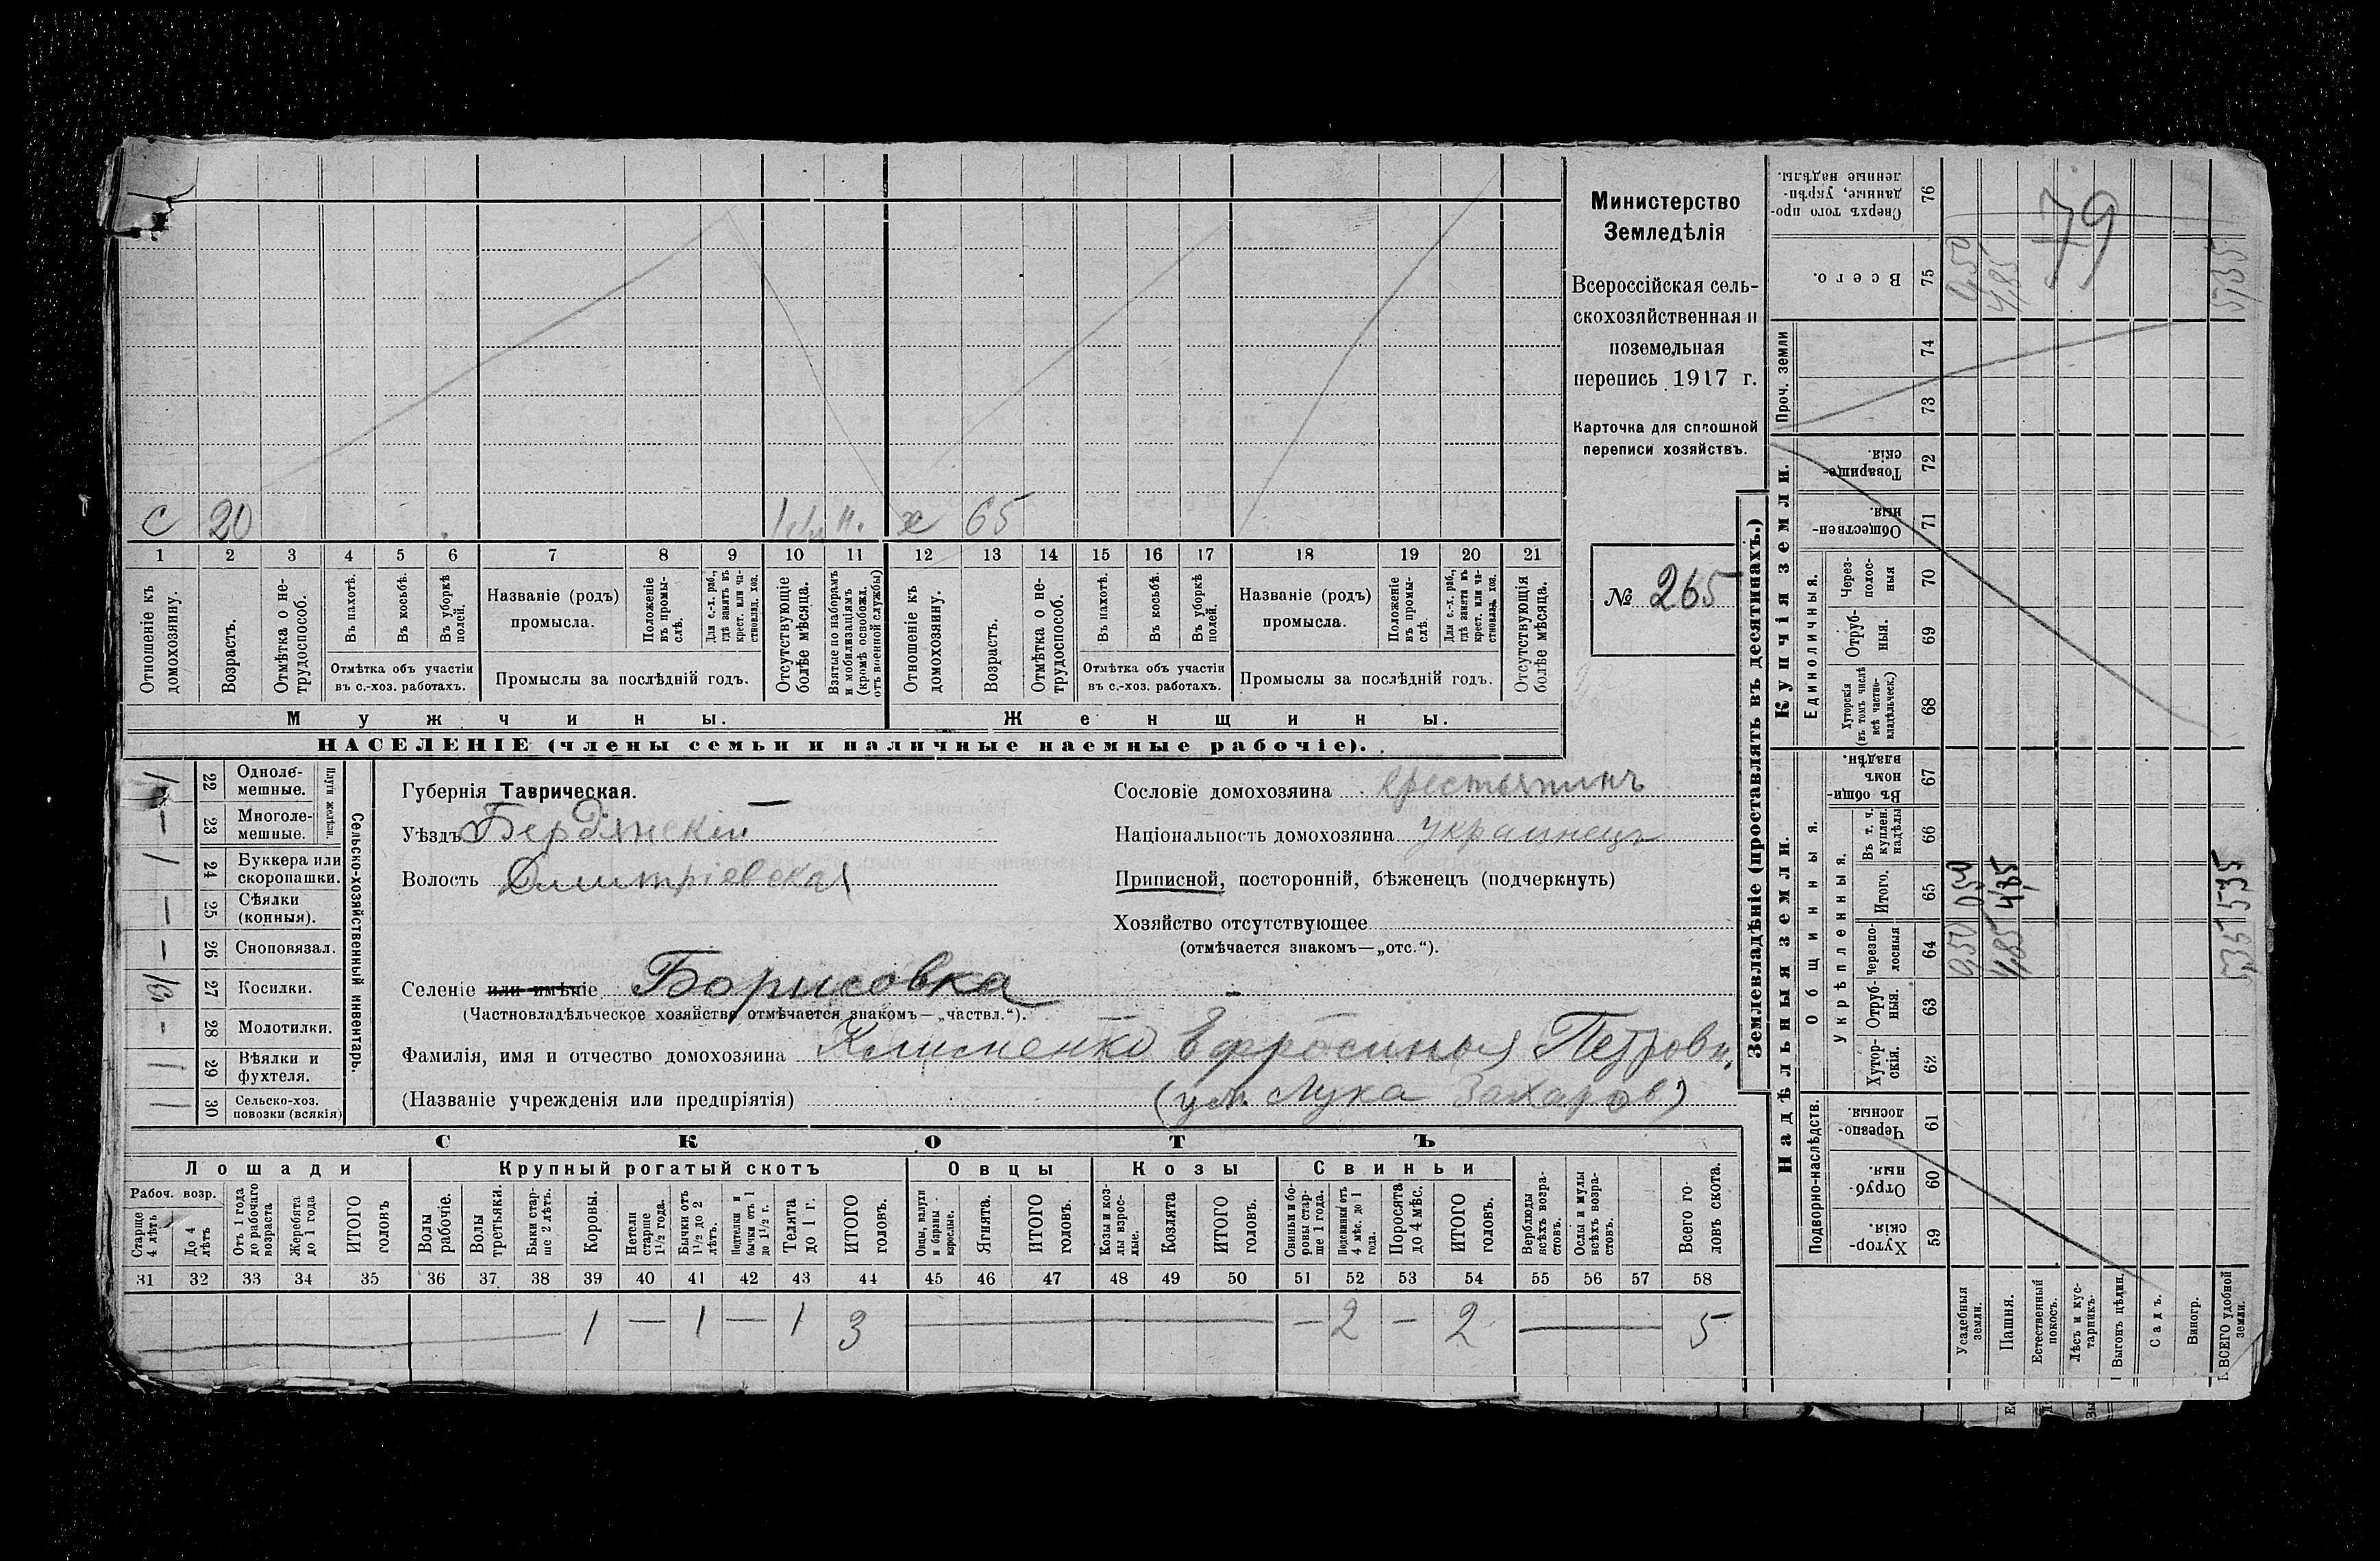 Министерство
Земледѣлія
Всероссійская сель-
скохозяйственная и
поземельная
перепись 1917 г.
Карточка для сплошной
переписи хозяйствъ.
№ 265
с 20
х 65
1 2 3 4 5 6 7 8 9 10 11 12 13 14 15 16 17 18 19 20 21
Отношеніе къ домохозяину.
Возрастъ.
Отмѣтка о не-трудоспособ.
Въ пахотѣ.
Въ косьбѣ.
Въ уборкѣ полей.
Отмѣтка объ участіи
въ с.-хоз. работахъ.
Названіе (родъ)
промысла.
Положеніе въ промы-слѣ.
Для с.-х. раб., гдѣ занятъ въ крест. или ча-стновлад. хоз.
Промыслы за послѣдній годъ.
Отсутствующіе болѣе мѣсяца.
Взятые по наборамъ и мобилизаціямъ (кромѣ освобожд. отъ военной службы)
Отношеніе къ домохозяину.
Возрастъ.
Отмѣтка о не-трудоспособ.
Въ пахотѣ.
Въ косьбѣ.
Въ уборкѣ полей.
Отмѣтка объ участіи
въ с.-хоз. работахъ.
Названіе (родъ)
промысла.
Положеніе въ промы-слѣ.
Для с.-х. раб., гдѣ занята въ крест. или ча-стновлад. хоз.
Промыслы за послѣдній годъ.
Отсутствующія болѣе мѣсяца.
Мужчины.
Женщины.
НАСЕЛЕНІЕ (члены семьи и наличные наемные рабочіе).
Сельско-хозяйственный инвентарь.
Плуги желѣзн.
22 Одноле-мешные. 1
23 Многоле-мешные. —
24 Буккера или скоропашки. 1
25 Сѣялки (конныя). —
26 Сноповязал. —
27 Косилки.
28 Молотилки. -
29 Вѣялки и фухтеля. 1
30 Сельско-хоз. повозки (всякія) 1
Губернія Таврическая.
Уѣздъ Бердянскій
Волость Дмитріевская
Сословіе домохозяина крестьянинъ
Національность домохозяина украинецъ
Приписной, посторонній, бѣженецъ (подчеркнуть)
Хозяйство отсутствующее
(отмѣчается знакомъ—„отс.“).
Селеніе или имѣніе Борисовка
(Частновладѣльческое хозяйство отмѣчается знакомъ—„частвл.“).
Фамилія, имя и отчество домохозяина Клименко Ефросинья Петровн.
(Названіе учрежденія или предпріятія) (ум. Лука Захаров)
СКОТЪ
Лошади
Крупный рогатый скотъ
Овцы
Козы
Свиньи
Рабоч. возр.
Старше 4 лѣтъ
До 4 лѣтъ
Отъ 1 года до рабочаго возраста
Жеребята до 1 года
ИТОГО головъ
Волы рабочіе.
Волы третьяки.
Быки стар-ше 2 лѣтъ.
Коровы.
Нетели старше 1½ года.
Бычки отъ 1½ до 2 лѣтъ.
Подтелки и бычки отъ 1 до 1½ г.
Телята до 1 г.
ИТОГО головъ.
Овцы, валухи и бараны взрослые.
Ягнята.
ИТОГО головъ.
Козы и коз-лы взрос-лые.
Козлята
ИТОГО головъ.
Свиньи и бо-ровы стар-ше 1 года.
Подсвинки отъ 4 мѣс. до 1 года.
Поросята до 4 мѣс.
ИТОГО головъ.
Верблюды всѣхъ возра-стовъ.
Ослы и мулы всѣхъ возра-стовъ.
Всего го-ловъ скота.
31 32 33 34 35 36 37 38 39 40 41 42 43 44 45 46 47 48 49 50 51 52 53 54 55 56 57 58
1 — 1 — 1 3 — 2 — 2 5
Землевладѣніе (проставлять въ десятинахъ.)
Купчія земли.
Надѣльныя земли.
Проч. земли
Единоличныя.
Общинныя.
Укрѣпленныя.
Подворно-наслѣдств.
Сверхъ того про-данные, укрѣп-ленные надѣлы. 76
Всего. 75
74
73
Товарище-скія. 72
Обществен-ныя. 71
Через-полос-ныя 70
Отруб-ныя. 69
Хуторскія (въ томъ числѣ всѣ частно-владѣльческ.) 68
Въ общин-номъ владѣн. 67
Въ т. ч. куплен. надѣлы 66
Итого. 65
Черезпо-лосныя 64
Отруб-ныя. 63
Хутор-скія. 62
Черезпо-лосныя. 61
Отруб-ныя. 60
Хутор-скія. 59
Усадебныя земли.
Пашня.
Естественный покосъ.
Лѣсъ и кус-тарникъ.
Выгонъ цѣлин.
Садъ.
Виногр.
ВСЕГО удобной земли.
79
0,50
4,85
5,35
0,50 0,50
4,85 4,85
5,35 5,35